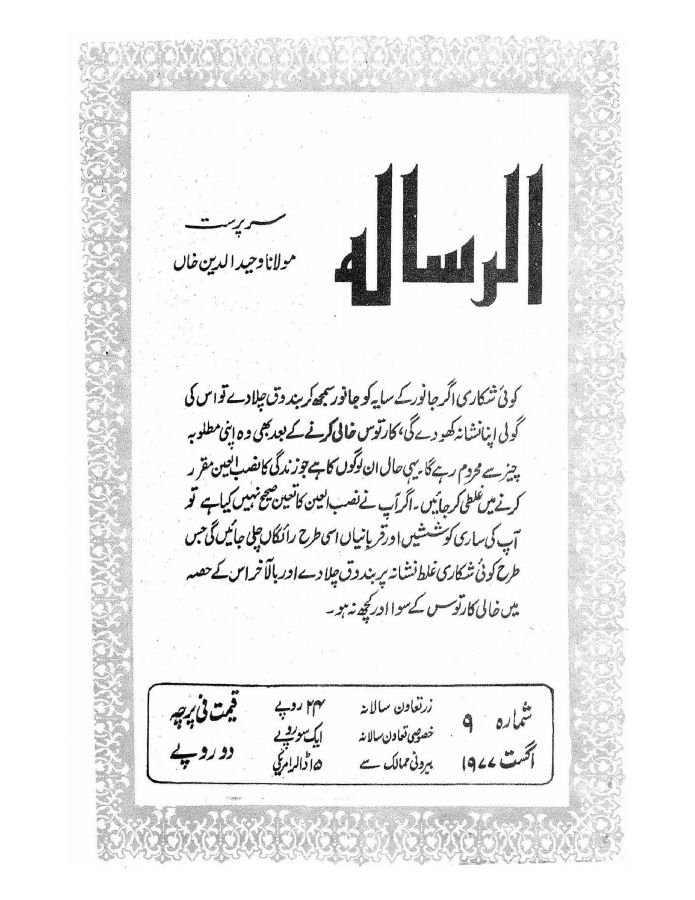 الرساله
سرپرست
مولانا وحید الدین خاں
کوئی شکاری اگر جانور کے سایہ کو جانور سمجھ کر بندوق چلا دے تو اس کی
گولی اپنا نشانہ کھو دے گی، کارتوس خالی کرنے کے بعد بھی وہ اپنی مطلوبہ
چیز سے محروم رہے گا۔ یہی حال ان لوگوں کا ہے جو زندگی کا نصب العین مقرر
کرنے میں غلطی کر جائیں۔ اگر آپ نے نصب العین کا تعین صحیح نہیں کیا ہے تو
آپ کی ساری کوششیں اور قربانیاں اسی طرح رائگاں چلی جائیں گی جس
طرح کوئی شکاری غلط نشانہ پر بندوق چلا دے اور بالآخر اس کے حصہ
میں خالی کارتوس کے سوا اور کچھ نہ ہو۔
شمارہ ۹
اگست ۱۹۷۷
زر تعاون سالانہ ۲۴ روپے
خصوصی تعاون سالانہ ایک سو روپے
بیرونی ممالک سے ۱۵ ڈالر امریکی
قیمت فی پرچہ
دو روپے